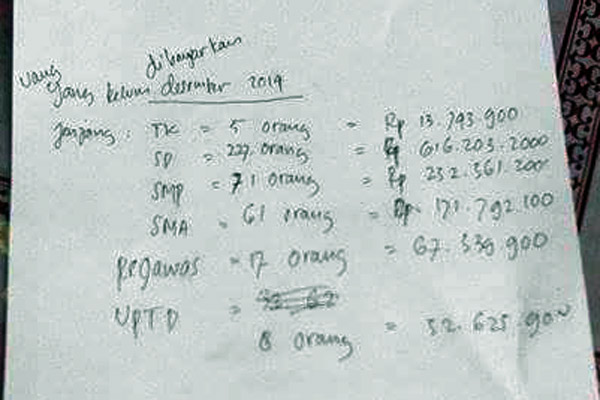 uang dibayarkan
yang belum desember 2019
Jenjang : TK = 5 orang = Rp 13.793.900
SD = 227 orang = Rp 616.203.2000
SMP = 71 orang = Rp 232.361.200
SMA = 61 orang = Rp 171.792.100
pegawas = 17 orang = 67.339.900
UPTD =
8 orang = 32.625.900